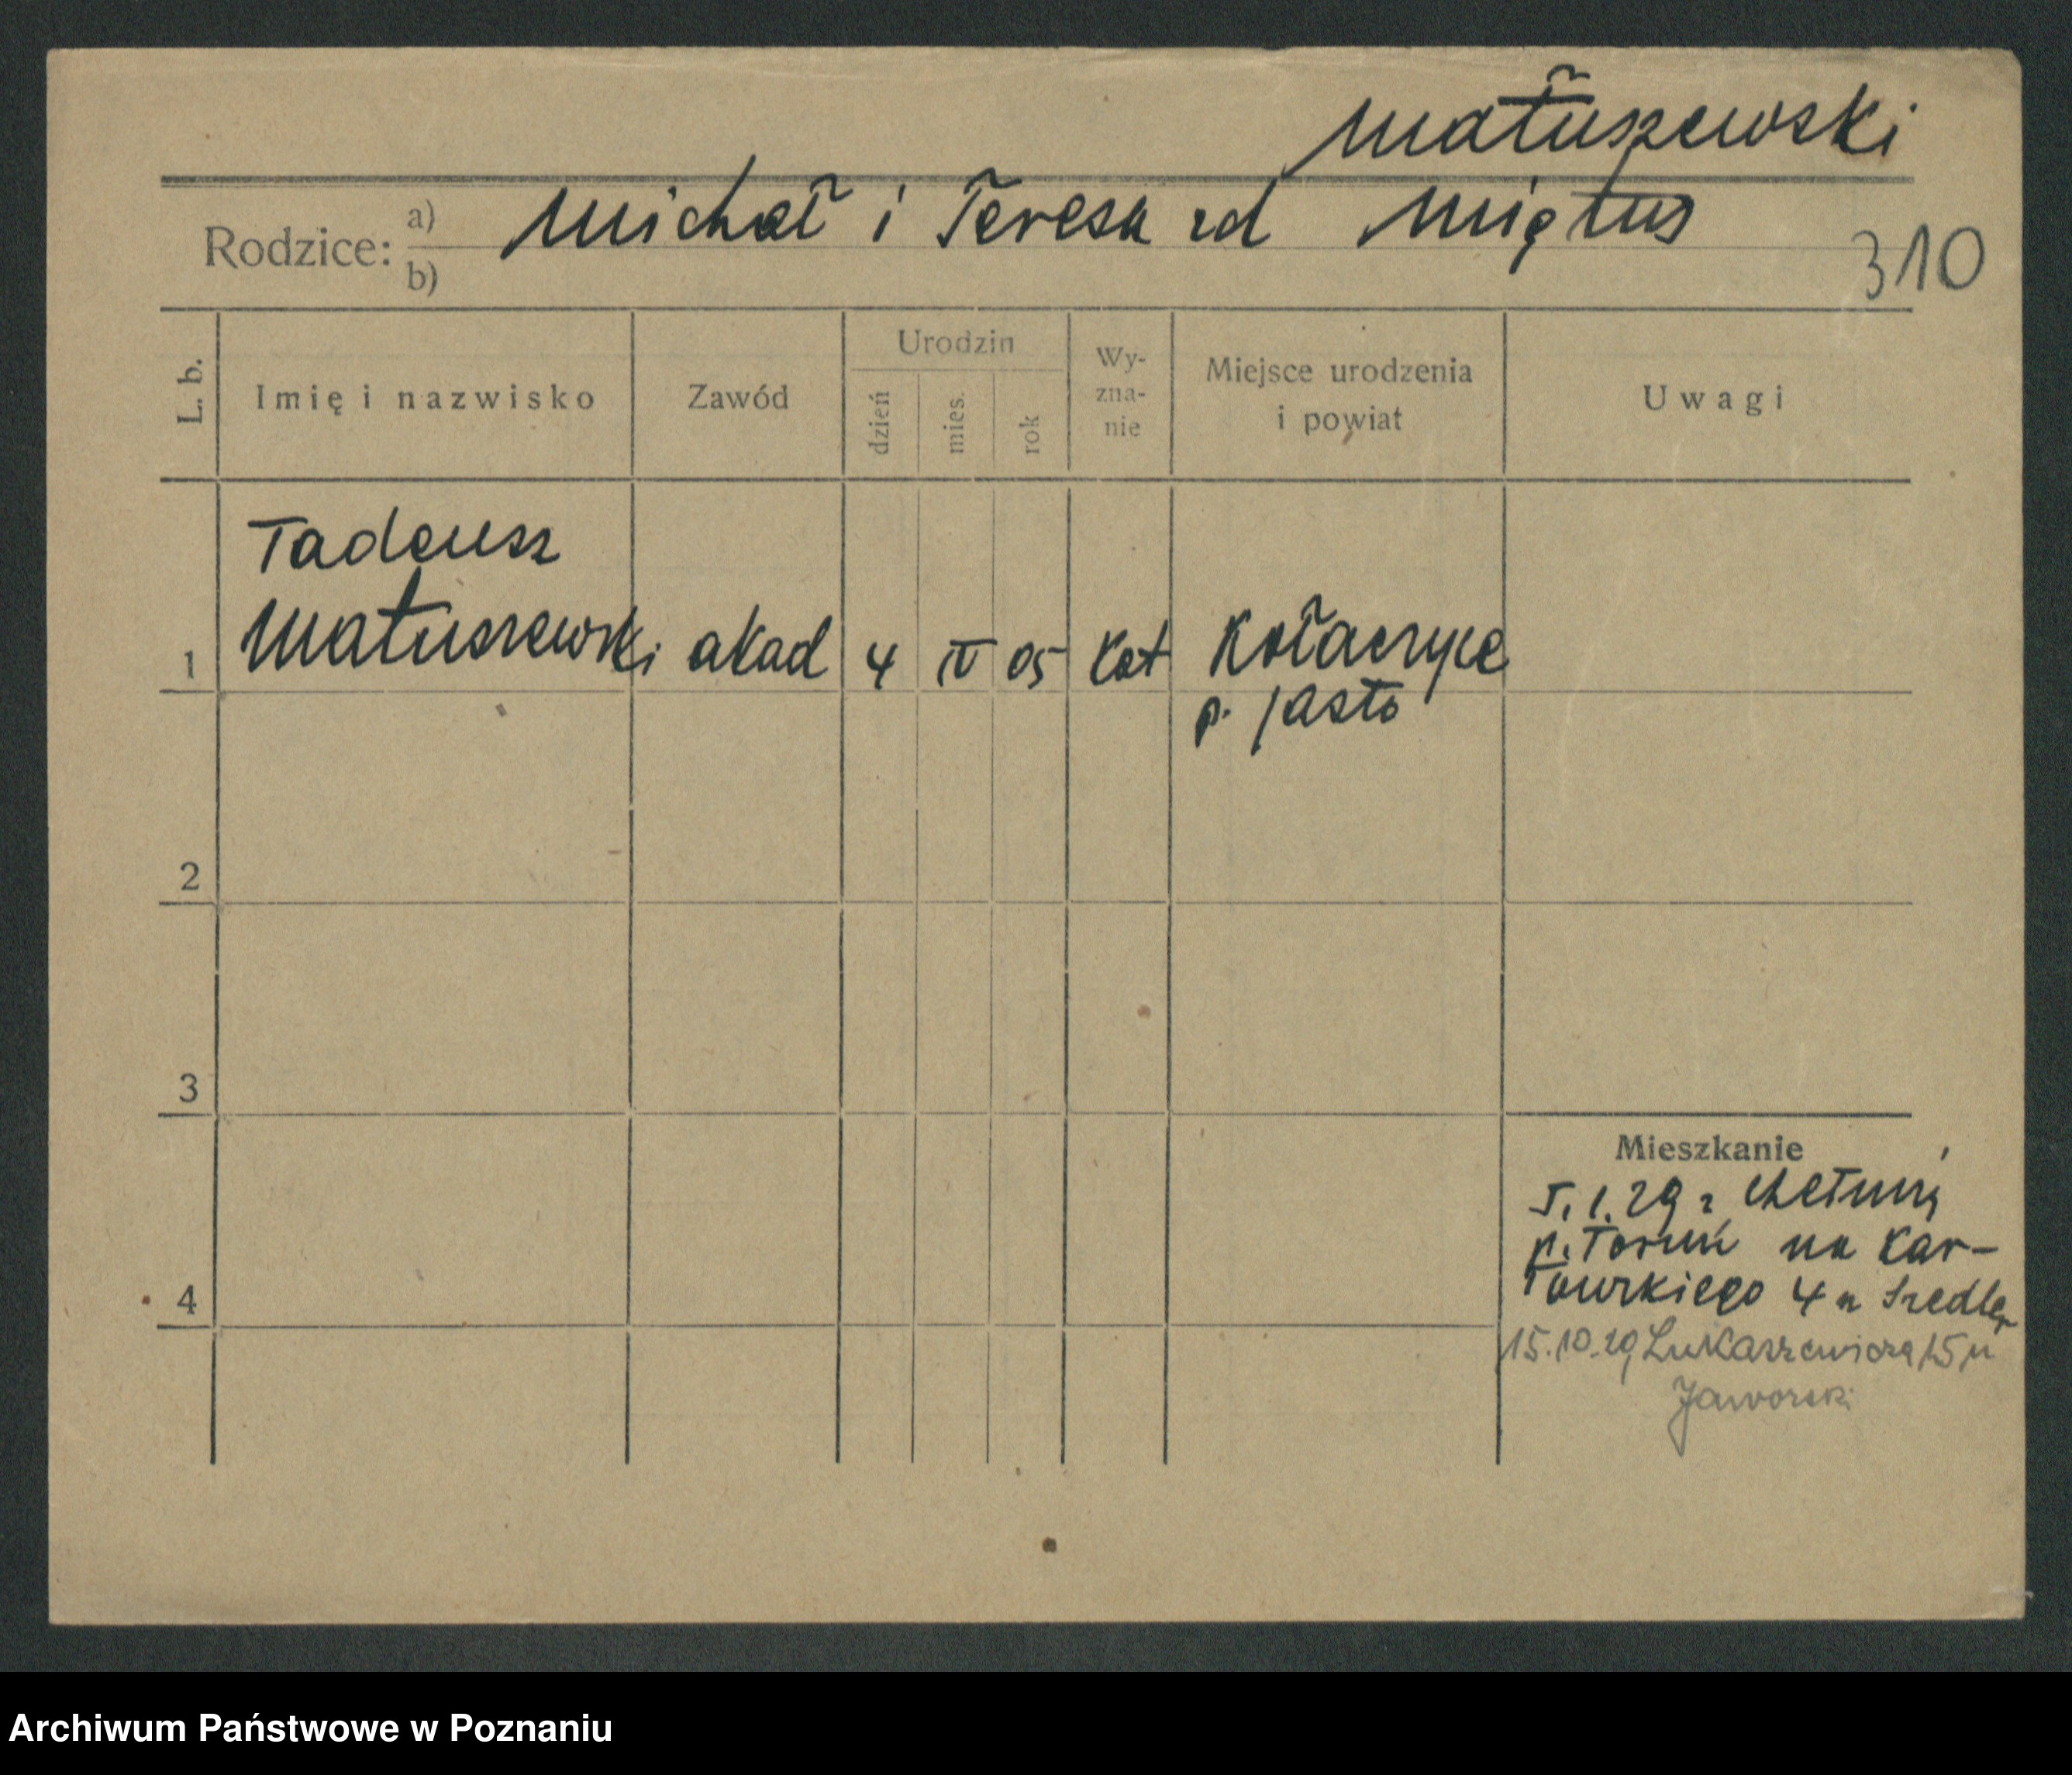 Matuszewski
Rodzice: a) Michał i Teresa zd Migtus
b)
310
L. b.
Imię i nazwisko
Zawód
Urodzin
dzień
mies.
rok
Wy-
zna-
nie
Miejsce urodzenia
i powiat
Uwagi
Tadeusz
1 Matuszewski akad 4 IV 05 kat Kołaczyce
p. Jasło
2
3
4
Mieszkanie
5. 1. 29 z
p. Toruń na Kar-
łowskiego 4 u
15.10.29 Łukaszewicza 15 u
Jaworski
Archiwum Państwowe w Poznaniu